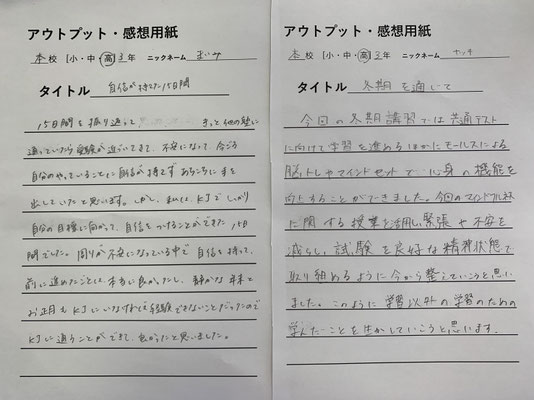 アウトプット・感想用紙
本校 [小・中・高] 3年 ニックネーム まいみ
タイトル 自信が持てた15日間
15日間を振り返って きっと他の塾に
通っていたら受験が近づいてきて、不安になって、今ごろ
自分のやっていることに自信が持てず あちこちに手を
出していたと思います。しかし、私は、KJでしっかり
自分の目標に向かって、自信をつけることができた15日
間でした。周りが不安になっている中で自信を持って、
前に進めたことは本当に良かったし、静かな年末と
お正月もKJにいなければ経験できないことだったので
KJに通うことができて、良かったと思いました。
アウトプット・感想用紙
本校 [小・中・高] 3年 ニックネーム
タイトル 冬期を通じて
今回の冬期講習では共通テスト
に向けて学習を進めるほかにモールスによる
脳トレやマインドセットで 身の機能を
向上することができました。今回のマインドフルネス
に関する授業を活用し緊張や不安を
減らし、試験を良好な精神状態で
取り組めるように今から整えていこうと思い
ました。このように学習以外の学習のための
学んだことを生かしていこうと思います。